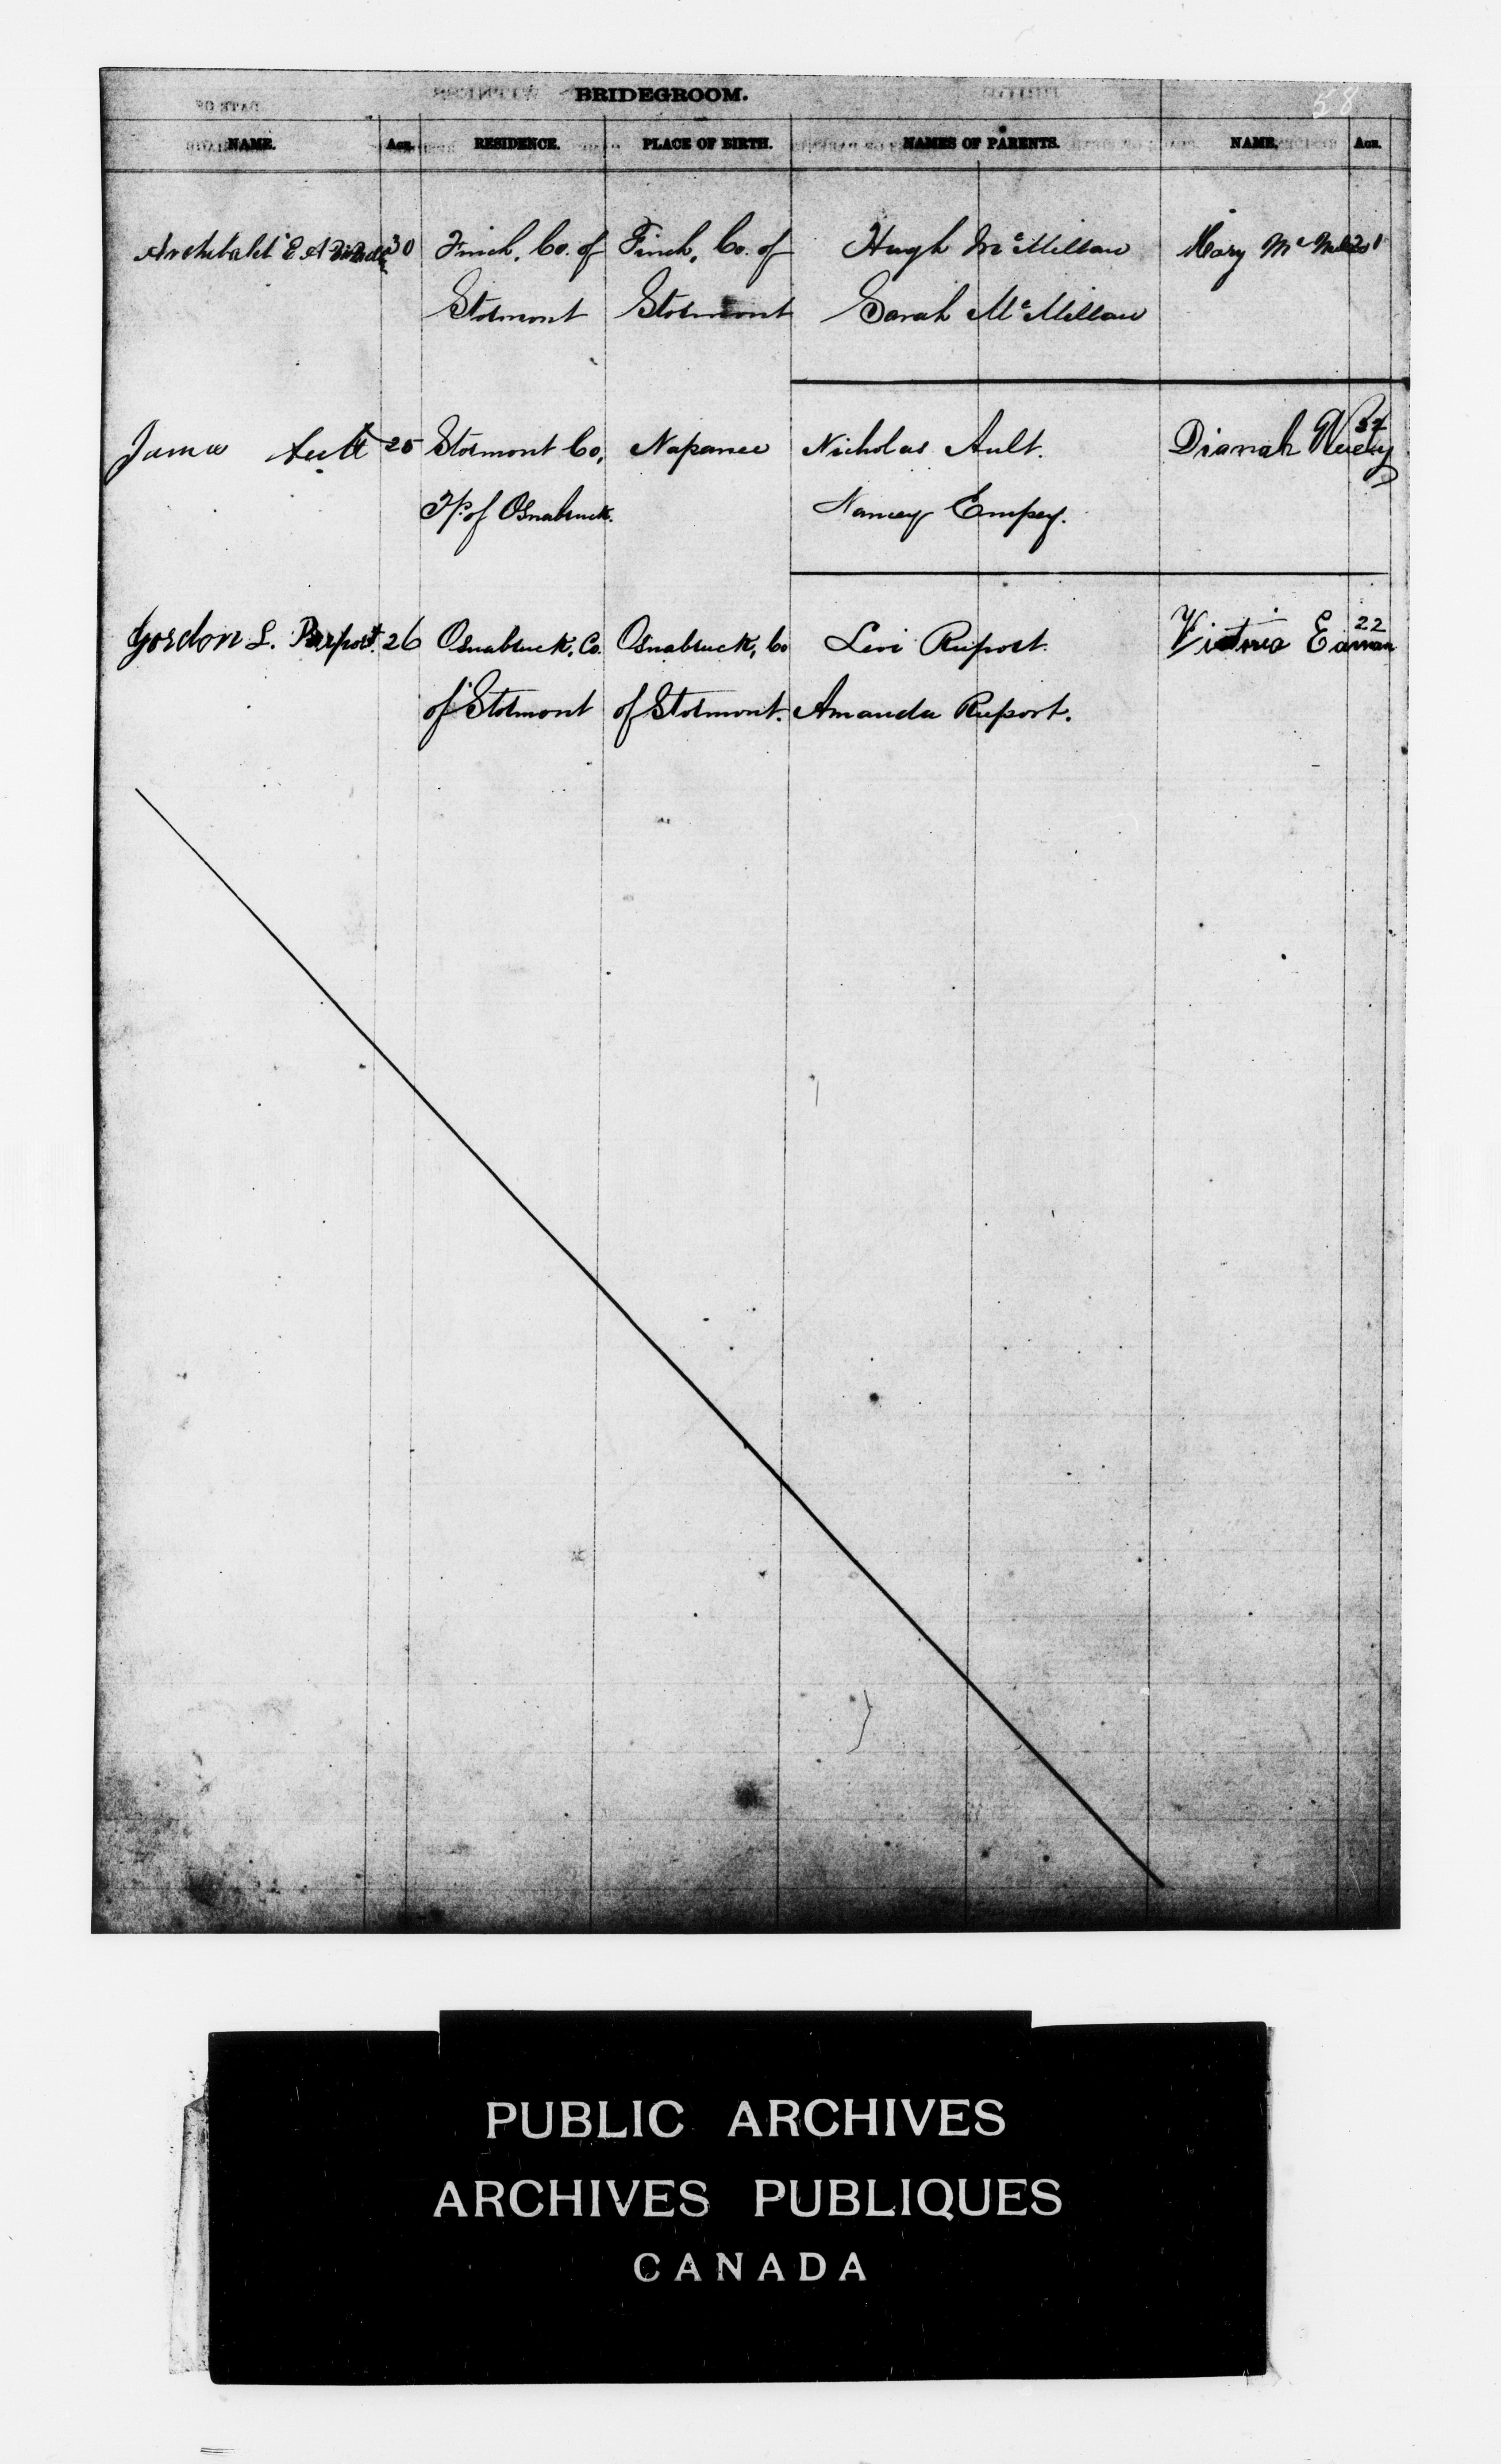 BRIDEGROOM.
58
NAME. AGE. RESIDENCE. PLACE OF BIRTH. NAMES OF PARENTS. NAME. AGE.
Archibald 30 Finch, Co. of Finch, Co. of Hugh McMillan Mary
Stormont Stormont Sarah McMillan
James Ault 25 Stormont Co, Napanee Nicholas Ault. Dianah 37
Tp. of Osnabruck. Nancy Empey.
Gordon L. Ruport. 26 Osnabruck, Co. Osnabruck, Co Levi Ruport. Victoria Eaman 22
of Stormont of Stormont. Amanda Ruport.
PUBLIC ARCHIVES
ARCHIVES PUBLIQUES
CANADA